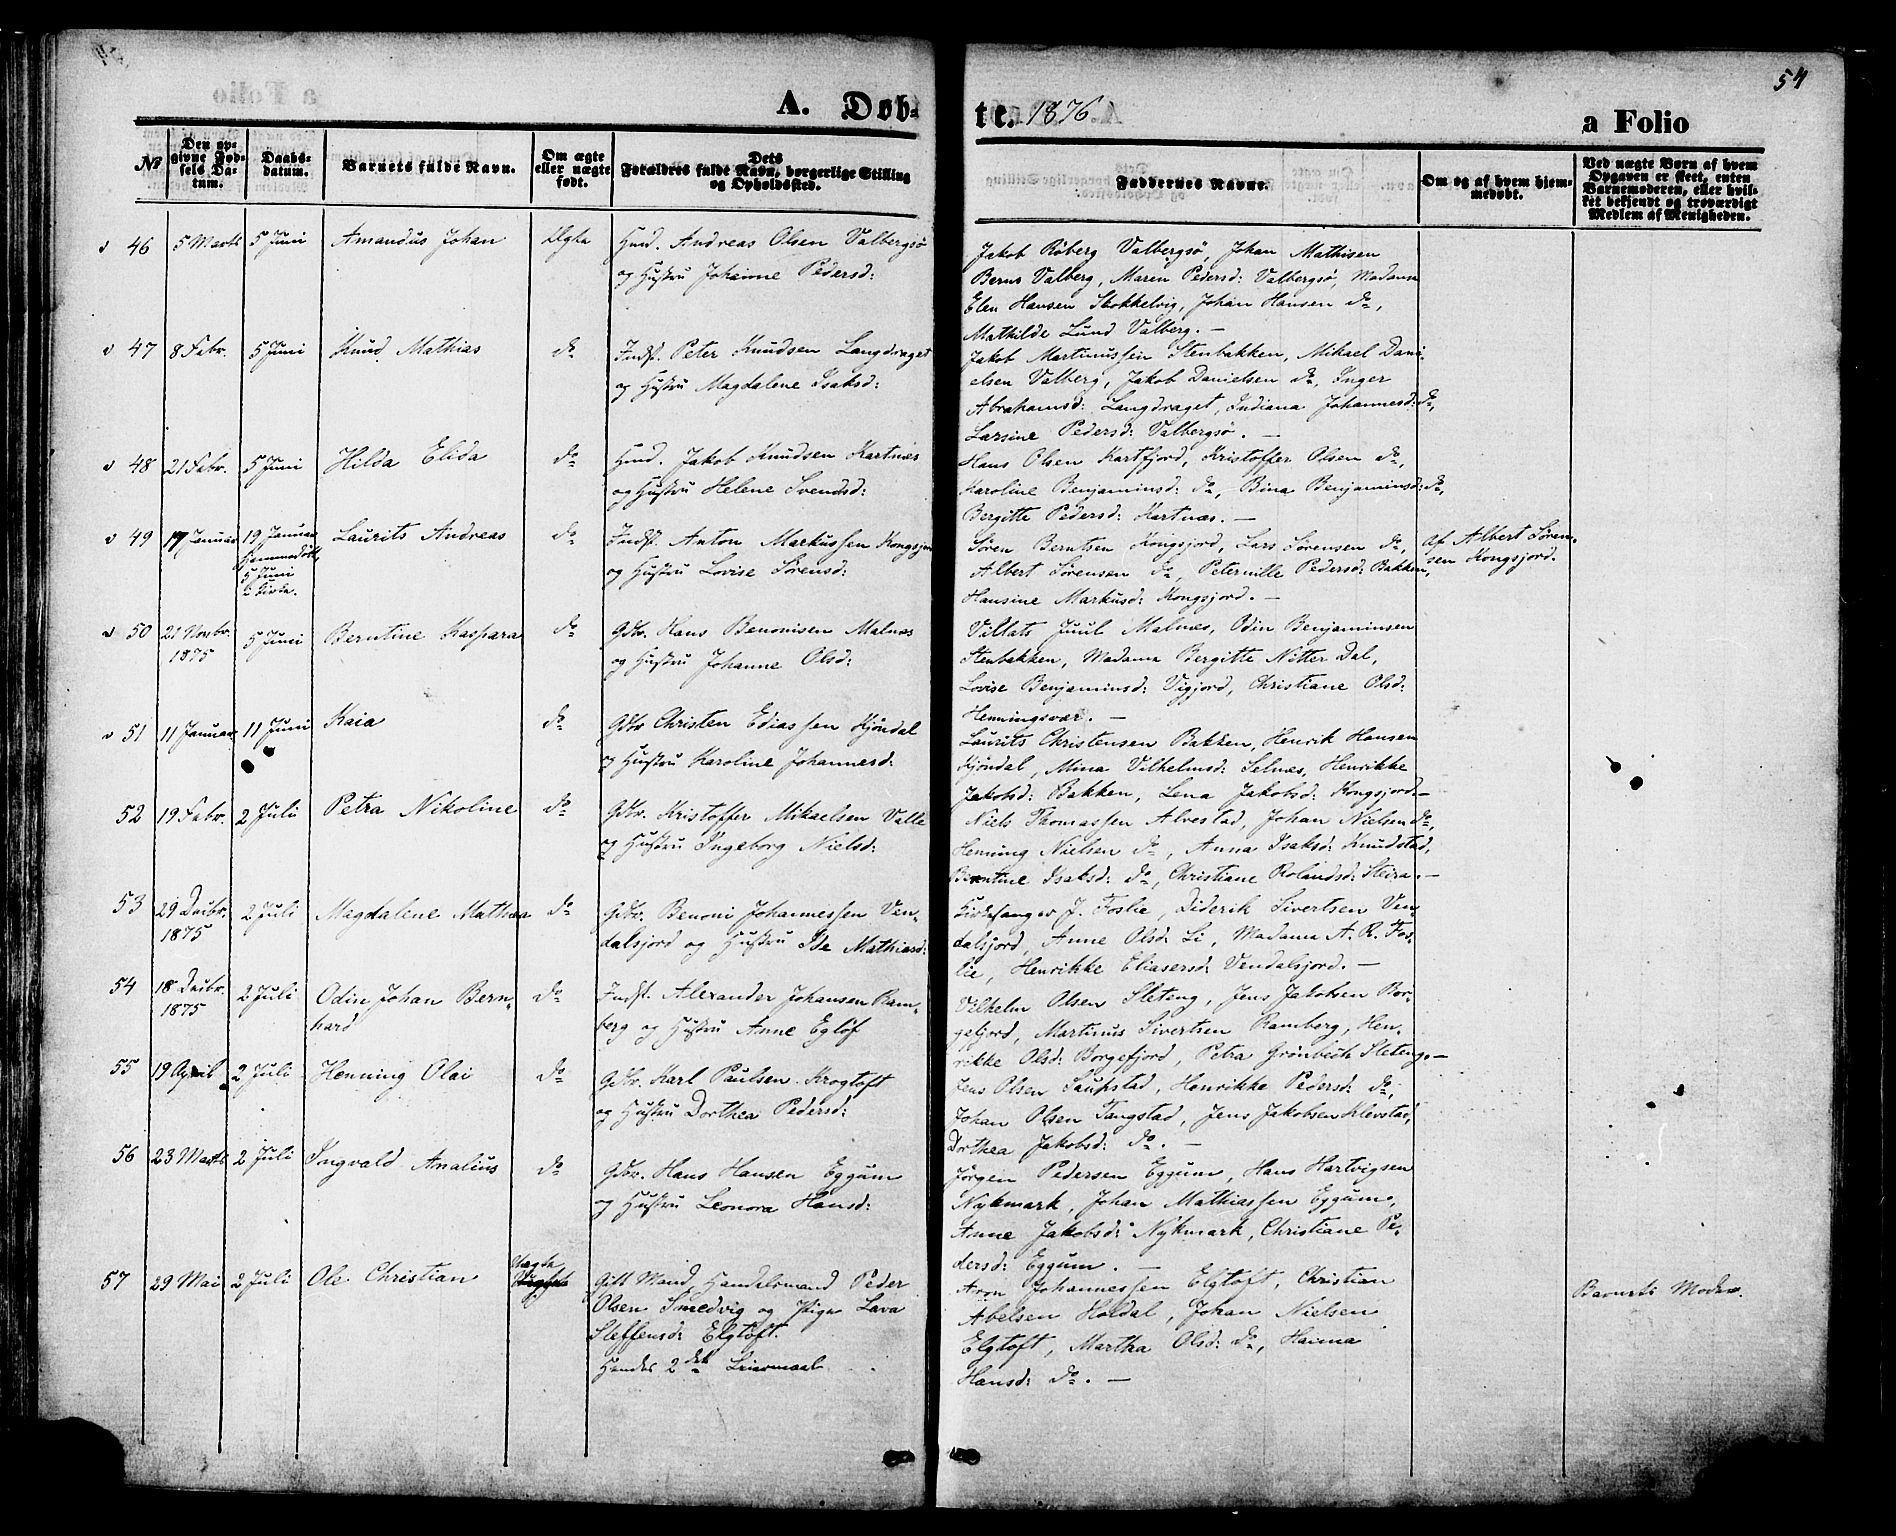 54
A. Døb-
te. 1876
a Folio
№
Den op-
givne Fød-
sels Da-
tum.
Daabs-
datum.
Barnets fulde Navn.
Om ægte
eller uægte
født.
Dets
Forældres fulde Navn, borgerlige Stilling
og Opholdssted.
Faddernes Navne.
Om og af hvem hjem-
medøbt.
Ved uægte Børn af hvem
Opgaven er skeet, enten
Barnemoderen, eller hvil-
ket bekjendt og troværdigt
Medlem af Menigheden.
v 46 5 Marts 5 Juni Amandus Johan Ægte Hmd. Andreas Olsen Valbergsø
og Hustru Johanne Pedersd:
Jakob Røberg Valbergsø, Johan Mathisen
Berus Valberg, Maren Pedersd: Valbergsø, Madame
Elen Hansen Stokkelvig, Johan Hansen do,
Mathilde Lund Valberg. –
v 47 8 Febr. 5 Juni Knud Mathias do Indf. Peter Knudsen Langdraget
og Hustru Magdalene Isaksd:
Jakob Martinussen Stenbakken, Mikael Dani-
elsen Valberg, Jakob Danielsen do, Inger
Abrahamsd: Langdraget, Indiana Johannesd: do,
Larsine Pedersd: Valbergsø. –
v 48 21 Febr. 5 Juni Hilda Elida do Hmd. Jakob Knudsen Kartnæs
og Hustru Helene Svendsd:
Hans Olsen Kartfjord, Kristoffer Olsen do,
Karoline Benjaminsd: do, Bina Benjaminsd: do,
Bergitte Pedersd: Kartnæs. –
v 49 17 Januar 19 Januar
Hjemmedøbt,
5 Juni
i Kirke.
Laurits Andreas do Indf. Anton Markussen Kongsjord
og Hustru Lovise Sørensd:
Søren Berntsen Kongsjord, Lars Sørensen do,
Albert Sørensen do, Peternille Pedersd: Bakken,
Hansine Markusd: Kongsjord. –
Af Albert Søren-
sen Kongsjord.
v 50 21 Novbr.
1875
5 Juni Berntine Kaspara do Gdbr. Hans Benonisen Malnæs
og Hustru Johanne Olsd:
Villats Juul Malnæs, Odin Benjaminsen
Stenbakken, Madame Bergitte Nitter Dal,
Lovise Benjaminsd: Vigjord, Christiane Olsd:
Henningsvær. –
v 51 11 Januar 11 Juni Kaia do Gdbr Christen Ediassen Hjøndal
og Hustru Karoline Johannesd:
Laurits Christensen Bakken, Henrik Hansen
Hjøndal, Mina Vilhelmsd: Selnæs, Henrikke
Jakobsd: Bakken, Lena Jakobsd: Kongsjord –
52 19 Febr. 2 Juli Petra Nikoline do Gdbr. Kristoffer Mikaelsen Valle
og Hustru Ingeborg Nielsd:
Niels Thomassen Alvestad, Johan Nielsen do,
Henning Nielsen do, Anna Isaksd: Knudstad,
Berntine Isaksd: do, Christiane Rolandsd: Steira. –
53 29 Decbr.
1875
2 Juli Magdalene Mathea do Gdbr. Benoni Johannessen Ven-
dalsjord og Hustru Ide Mathiasd:
Kirkesanger J. Foslie, Diderik Sivertsen Ven-
dalsjord, Anne Olsd: Li, Madame A. R. Fos-
lie, Henrikke Eliasersd: Vendalsjord. –
54 18 Decbr.
1875
2 Juli Odin Johan Bern-
hard
do Indf. Alexander Johansen Ram-
berg og Hustru Anne Eglof
Vilhelm Olsen Sleteng, Jens Jakobsen Bor-
gefjord, Martinus Sivertsen Ramberg, Hen-
rikke Olsd: Borgefjord, Petra Grønbech Sleteng. –
55 19 April 2 Juli Henning Olai do Gdbr. Karl Paulsen Krogtoft
og Hustru Dorthea Pedersd:
Jens Olsen Saupstad, Henrikke Pedersd: do,
Johan Olsen Tangstad, Jens Jakobsen Klevstad,
Dorthea Jakobsd: do. –
56 23 Marts 2 Juli Ingvald Analius do Gdbr. Hans Hansen Eggum
og Hustru Leonora Hansd:
Jørgen Pedersen Eggum, Hans Hartvigsen
Nykmark, Johan Mathiassen Eggum,
Anne Jakobsd: Nykmark, Christiane Pe-
dersd: Eggum. –
57 29 Mai 2 Juli Ole Christian Uægte Gift Mand, Handelsmand Peder
Olsen Smedvig og Pige Lava
Steffensd: Elgtoft.
Hendes 2det Leiermaal
Aron Johannessen Elgtoft, Christian
Abelsen Holdal, Johan Nielsen
Elgtoft, Martha Olsd: do, Hanna
Hansd: do. –
Barnets Moder.